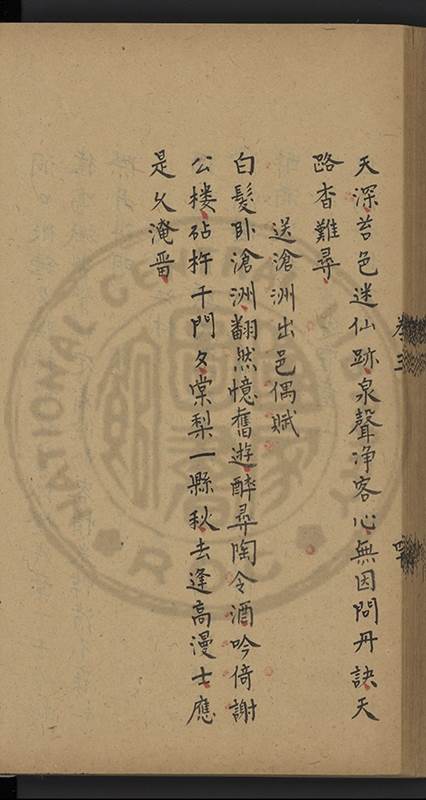 天深苔色迷仙跡泉聲净客心無因問丹訣天
路杳難尋
送滄洲出邑偶賦
白髮卧滄洲翻然憶舊遊醉尋陶令酒吟倚謝
公楼砧杵千門夕棠梨一縣秋去逢高漫士應
是久淹畱
卷三
NATIONAL CENTRAL
R.O.C.